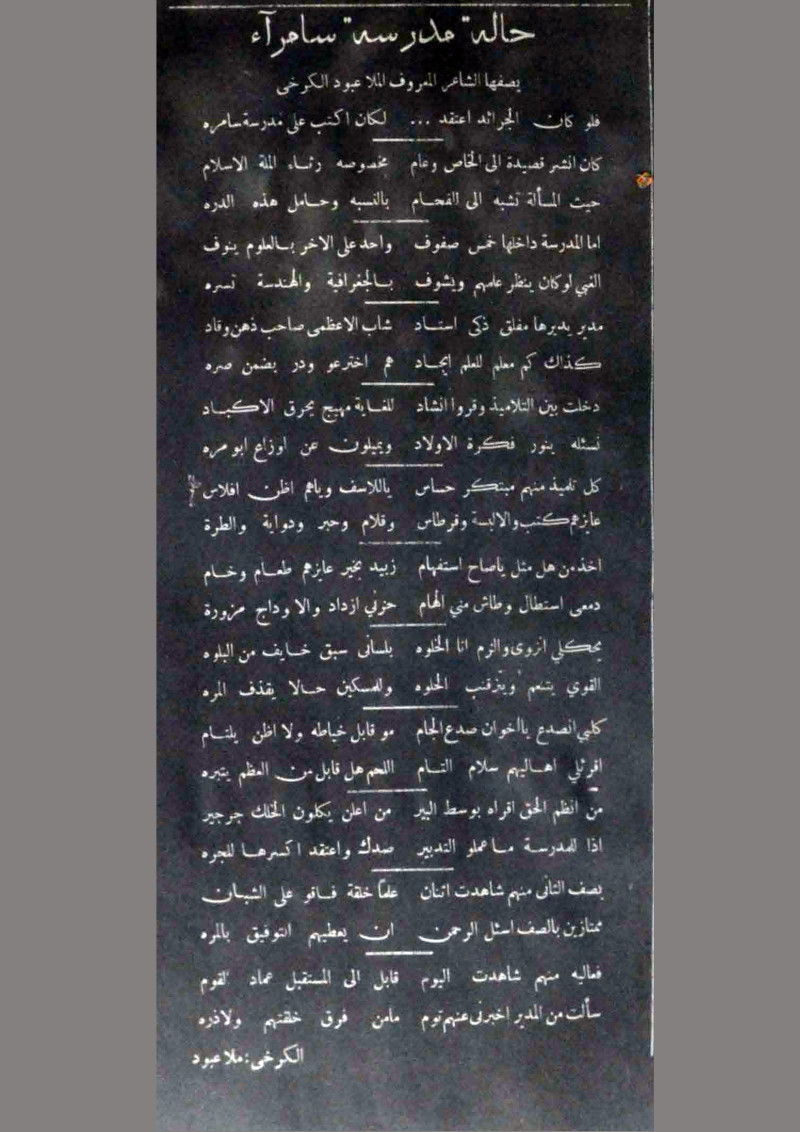 حالة مدرسة سامرآء
يصفها الشاعر المعروف الملا عبود الكرخي
فلو كان الجرائد اعتقد ... لكان اكتب على مدرسة سامره
كان انشر قصيدة الى الخاص وعام مخصوصه رثاء الملة الاسلام
حيث المسألة تشبه الى الفحام بالنسبه وحامل هذه الدره
اما المدرسة داخلها خمس صفوف واحد على الاخر بالعلوم ينوف
الغبي لو كان ينظر علمهم ويشوف بالجغرافية والهندسة تسره
مدير يديرها مفلق ذكي استاد شاب الاعظمى صاحب ذهن وقاد
كذاك كم معلم للعلم ايجاد هم اخترعو ودر بضمن صره
دخلت بين التلاميذ وقروا انشاد للغاية مهيج يحرق الاكباد
نسئله ينور فكرة الاولاد ويميلون عن اوزاع ابو مره
كل تلميذ منهم مبتكر حساس ياللاسف وياهم اظن افلاس
عايزهم كتب والالبسة وقرطاس وقلام وحبر ودواية والطرة
اخذ من هل مثل ياصاح استفهام زبيد بخير عايزهم طعام وخام
دمعى استطال وطاش مني الهام حزني ازداد والاوداج مزورة
يحكلي انزوى والزم انا الخلوه بلسانى سبق خايف من البلوه
القوي يتنعم ويتزقنب الحلوه وللمسكين حالا يقذف المره
كلبي انصدع يااخوان صدع الجام مو قابل خياطه ولا اظن يلتام
اقرئلي اهاليهم سلام التام اللحم هل قابل من العظم يتبره
من انظم الحق اقراه بوسط البير من اعلن يكلون الخلك جرجير
اذا للمدرسة ماعملو التدبير صدك واعتقد اكسرها للجره
بصف الثانى منهم شاهدت اثنان علما خلقة فاقو على الشبان
ممتازين بالصف اسئل الرحمن ان يعطيهم التوفيق بالمره
فعاليه منهم شاهدت اليوم قابل الى المستقبل عماد القوم
سألت من المدير اخبرنى عنهم توم مامن فرق خلقتهم ولاذره
الكرخى: ملا عبود